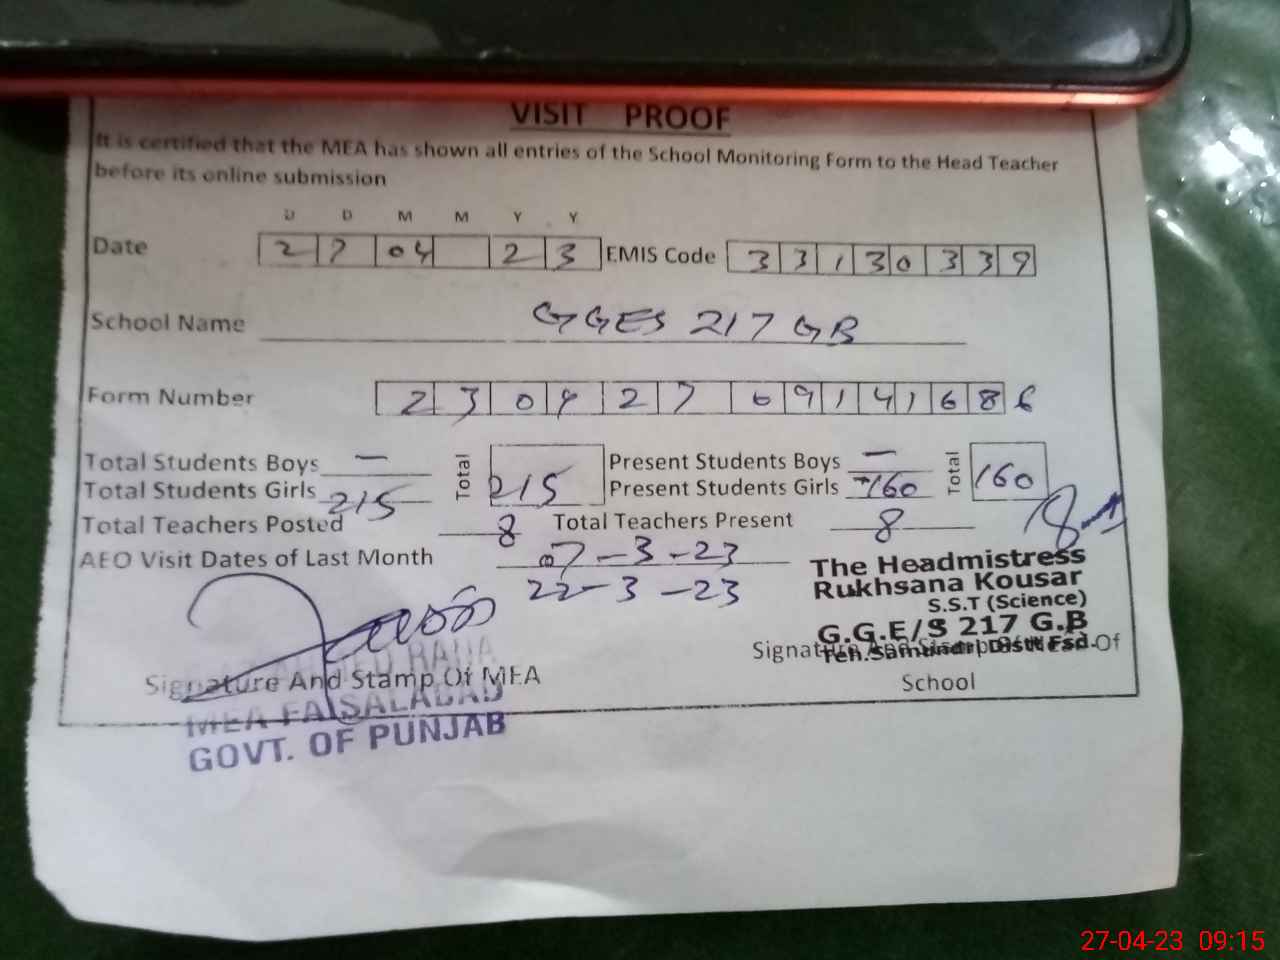 VISIT PROOF
It is certified that the MEA has shown all entries of the School Monitoring Form to the Head Teacher
before its online submission
D D M M Y Y
Date 27 04 23 EMIS Code 33130339
School Name GGES 217 GB
Form Number 23042709141686
Total Students Boys — Total 215 Present Students Boys — Total 160
Total Students Girls 215 Present Students Girls 160
Total Teachers Posted 8 Total Teachers Present 8
AEO Visit Dates of Last Month 07-3-23
22-3-23
The Headmistress
Rukhsana Kousar
S.S.T (Science)
G.G.E/S 217 G.B
Teh.Samundri Distt Fsd.
Signature And Stamp Of Head Of
School
RANA
Signature And Stamp Of MEA
MEA FAISALABAD
GOVT. OF PUNJAB
27-04-23 09:15